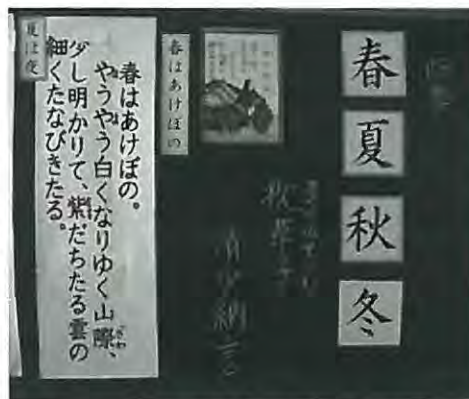 春
夏
秋
冬
枕草子
清少納言
春はあけぼの
春はあけぼの。
やうやう白くなりゆく山際、
少し明かりて、紫だちたる雲の
細くたなびきたる。
夏は夜